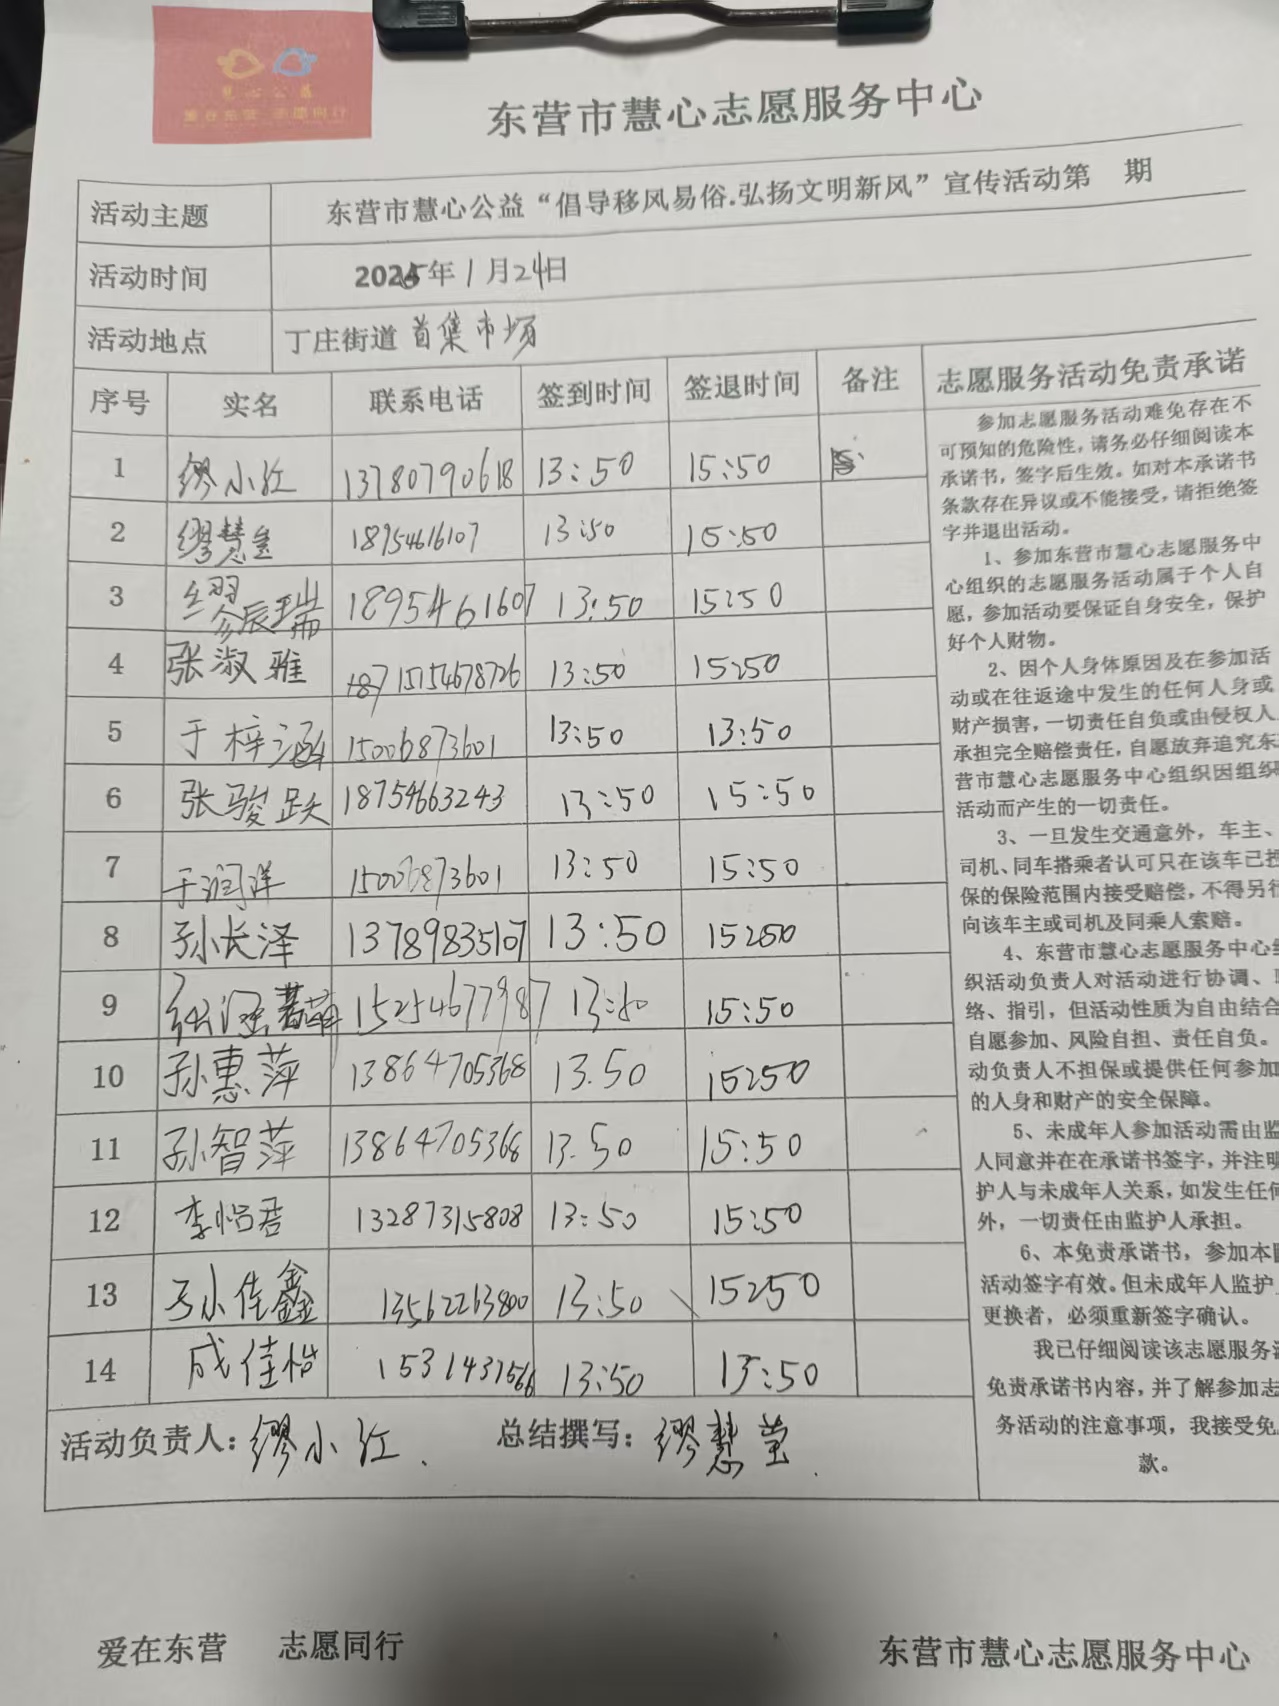 慧心公益
爱在东营 志愿同行
东营市慧心志愿服务中心
活动主题 东营市慧心公益“倡导移风易俗.弘扬文明新风”宣传活动第 期
活动时间 2025年1月24日
活动地点 丁庄街道 首集市场
序号 实名 联系电话 签到时间 签退时间 备注
1 缪小红 13780790618 13:50 15:50
2 缪慧莹 18954616107 13:50 15:50
3 缪辰瑞 18954616107 13:50 15:50
4 张淑雅 15154678726 13:50 15:50
5 于梓涵 15006873601 13:50 13:50
6 张骏跃 18754663243 13:50 15:50
7 于润洋 15006873601 13:50 15:50
8 孙长泽 13789835107 13:50 15:50
9 15254677987 13:50 15:50
10 孙惠萍 13864705368 13.50 15:50
11 孙智萍 13864705368 13.50 15:50
12 李怡君 13287315808 13:50 15:50
13 孙佳鑫 13562263800 13:50 15:50
14 成佳怡 1531437566 13:50 15:50
活动负责人：缪小红. 总结撰写：缪慧莹.
志愿服务活动免责承诺
参加志愿服务活动难免存在不
可预知的危险性，请务必仔细阅读本
承诺书，签字后生效。如对本承诺书
条款存在异议或不能接受，请拒绝签
字并退出活动。
1、参加东营市慧心志愿服务中
心组织的志愿服务活动属于个人自
愿，参加活动要保证自身安全，保护
好个人财物。
2、因个人身体原因及在参加活
动或在往返途中发生的任何人身或
财产损害，一切责任自负或由侵权人
承担完全赔偿责任，自愿放弃追究东
营市慧心志愿服务中心组织因组织
活动而产生的一切责任。
3、一旦发生交通意外，车主、
司机、同车搭乘者认可只在该车已投
保的保险范围内接受赔偿，不得另行
向该车主或司机及同乘人索赔。
4、东营市慧心志愿服务中心组
织活动负责人对活动进行协调、联
络、指引，但活动性质为自由结合
自愿参加、风险自担、责任自负。
动负责人不担保或提供任何参加
的人身和财产的安全保障。
5、未成年人参加活动需由监
人同意并在在承诺书签字，并注明
护人与未成年人关系，如发生任何
外，一切责任由监护人承担。
6、本免责承诺书，参加本团
活动签字有效。但未成年人监护
更换者，必须重新签字确认。
我已仔细阅读该志愿服务活
免责承诺书内容，并了解参加志
务活动的注意事项，我接受免
款。
爱在东营 志愿同行
东营市慧心志愿服务中心